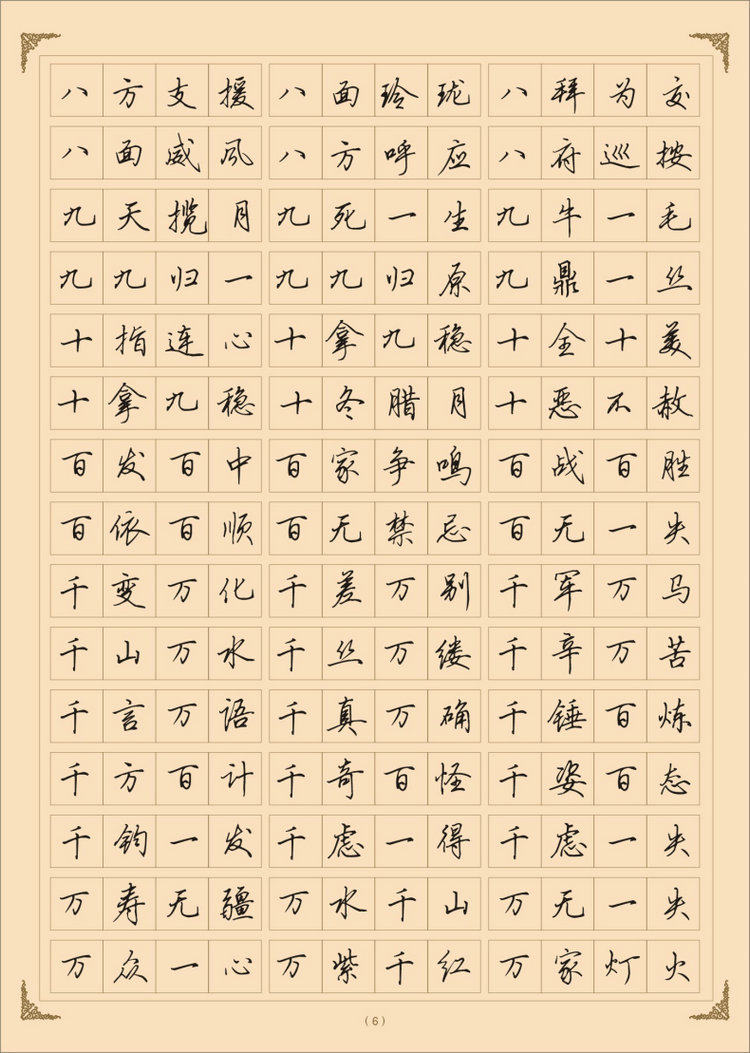 八方支援 八面玲珑 八拜为交
八面威风 八方呼应 八府巡按
九天揽月 九死一生 九牛一毛
九九归一 九九归原 九鼎一丝
十指连心 十拿九稳 十全十美
十拿九稳 十冬腊月 十恶不赦
百发百中 百家争鸣 百战百胜
百依百顺 百无禁忌 百无一失
千变万化 千差万别 千军万马
千山万水 千丝万缕 千辛万苦
千言万语 千真万确 千锤百炼
千方百计 千奇百怪 千姿百态
千钧一发 千虑一得 千虑一失
万寿无疆 万水千山 万无一失
万众一心 万紫千红 万家灯火
(6)